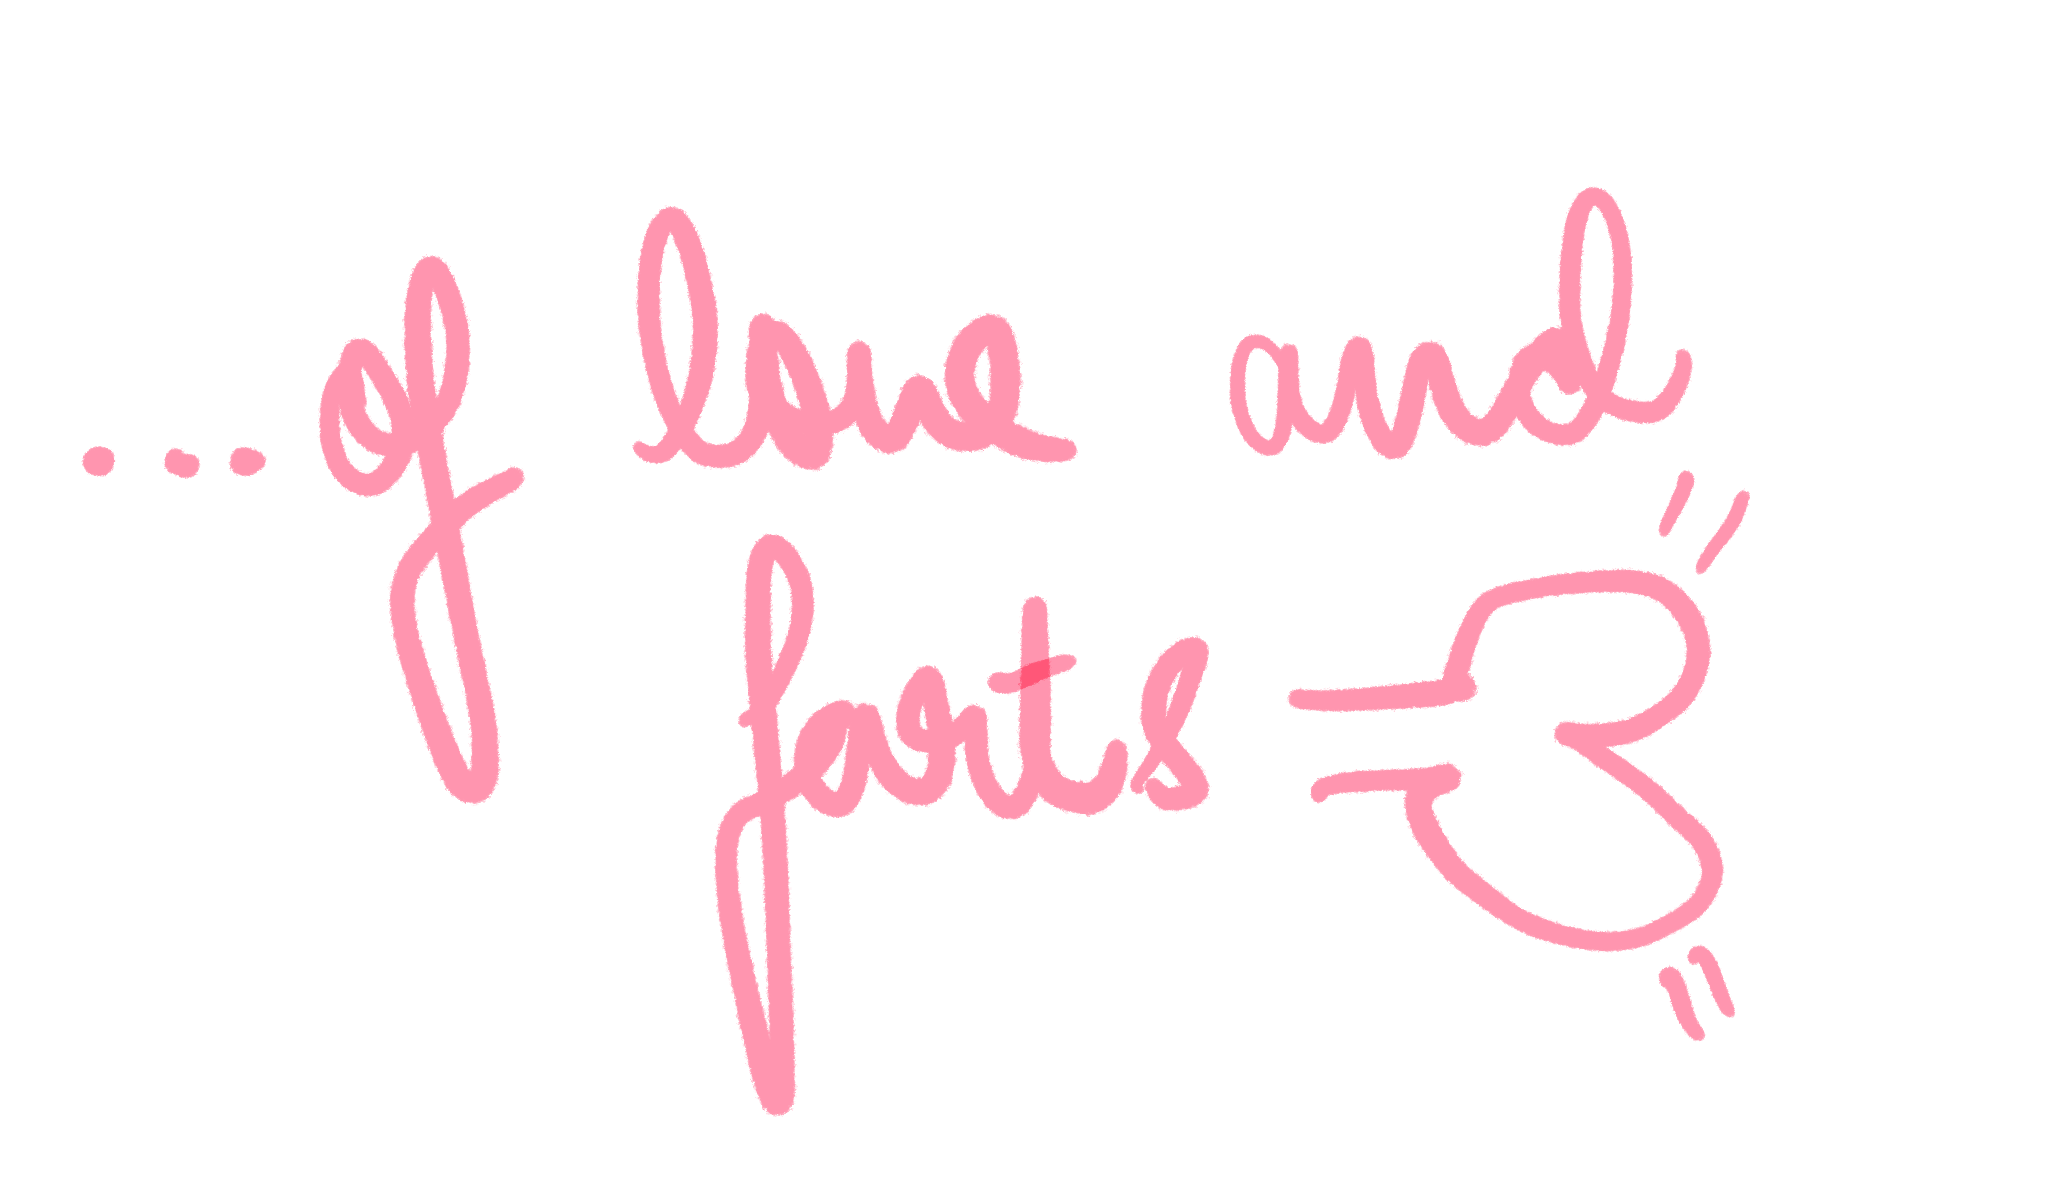 ...of love and
farts